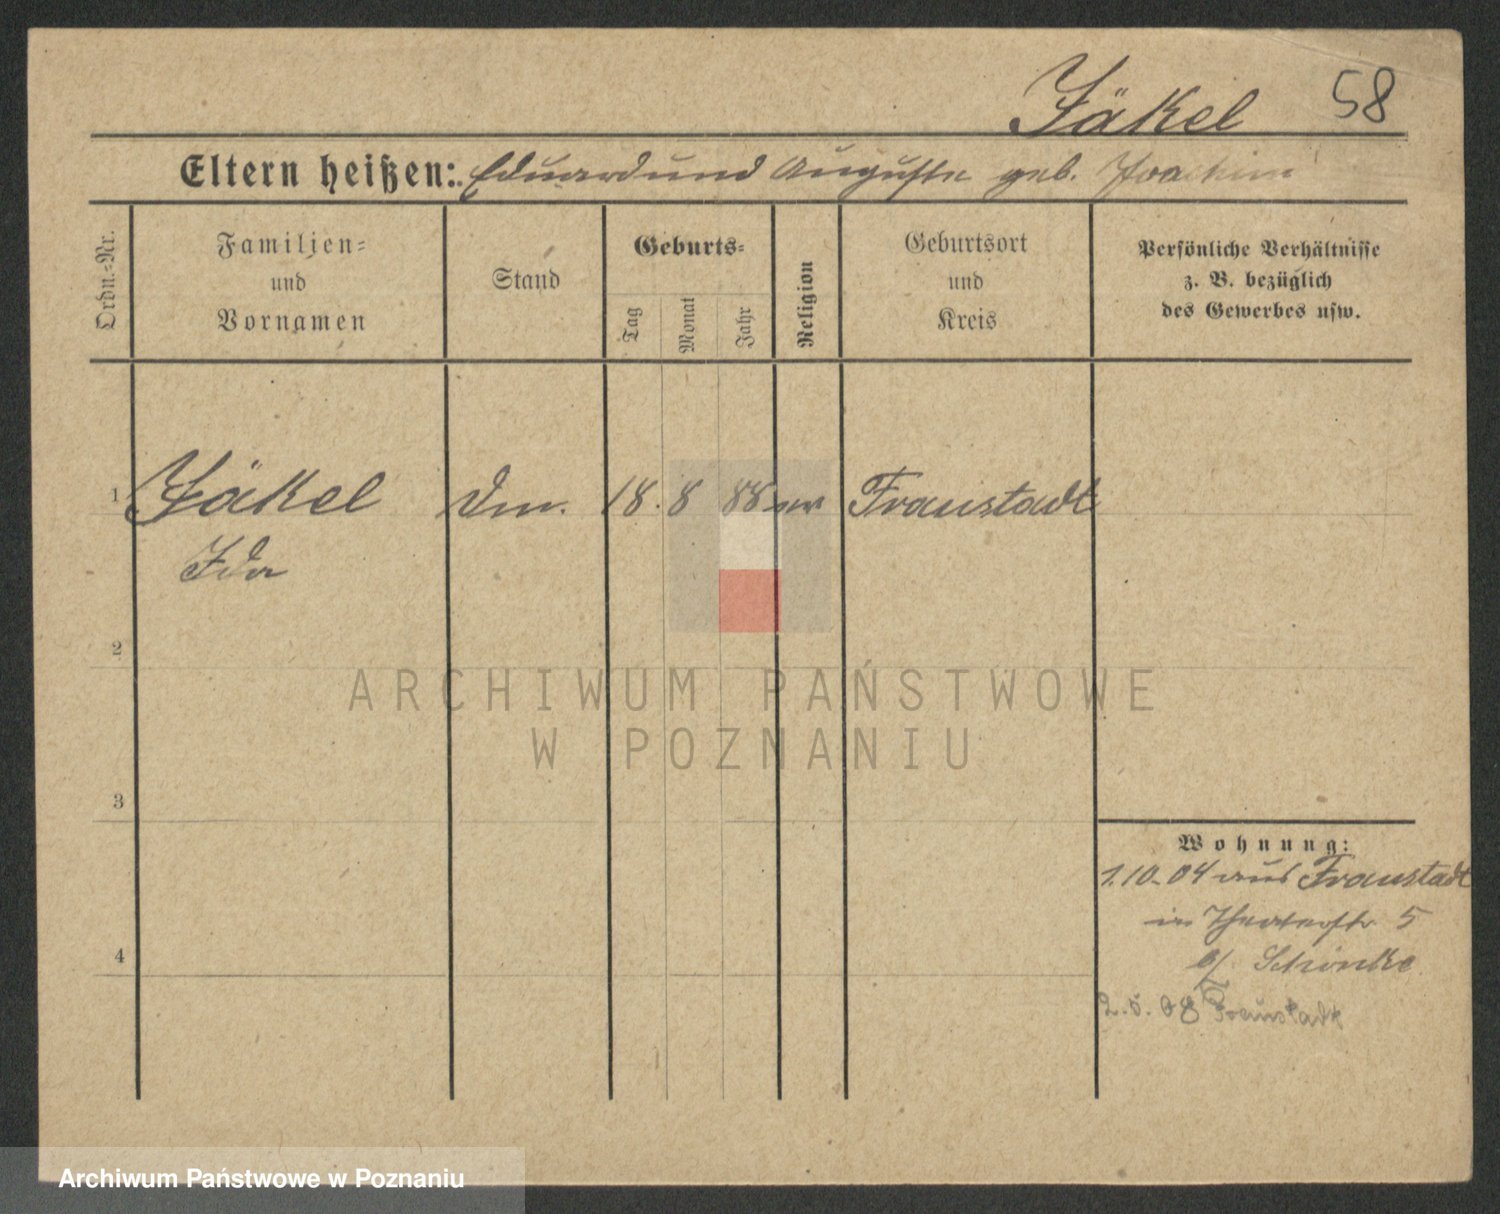 Jäkel 58
Eltern heißen: Eduard und Auguste geb. Joachim
Ordn.-Nr.
Familien-
und
Vornamen
Stand
Geburts-
Tag
Monat
Jahr
Religion
Geburtsort
und
Kreis
Persönliche Verhältnisse
z. B. bezüglich
des Gewerbes usw.
1 Jäkel 18. 8 88 Fraustadt
Ida
2
3
4
Wohnung:
1.10.04 aus Fraustadt
in Theaterstr 5
b/ Schönke
2.5.08 Fraustadt
ARCHIWUM PAŃSTWOWE
W POZNANIU
Archiwum Państwowe w Poznaniu